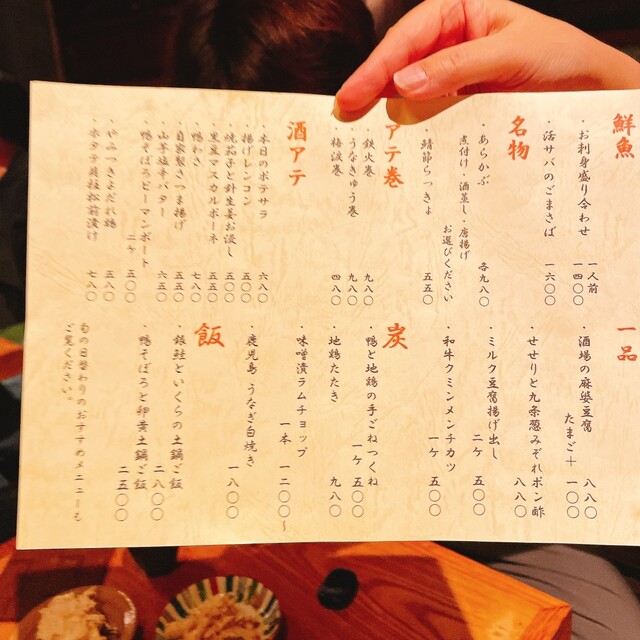 鮮魚
・お刺身盛り合わせ
一人前
一四〇〇
・活サバのごまさば
一六〇〇
名物
・あらかぶ
煮付け・酒蒸し・唐揚げ
お選びください
各九八〇
・鯖節らっきょ
五五〇
アテ巻
・鉄火巻
九八〇
・うなきゅう巻
九八〇
・梅波巻
四八〇
酒アテ
・本日のポテサラ
六八〇
・揚げレンコン
五〇〇
・焼茄子と針生姜お浸し
五〇〇
・黒豆マスカルポーネ
五五〇
・鴨わさ
七八〇
・自家製さつま揚げ
五五〇
・山芋塩辛バター
六五〇
・鴨そぼろピーマンボート
二ケ 五〇〇
・やみつきよだれ鶏
五八〇
七八〇
一品
・酒場の麻婆豆腐
八八〇
たまご＋ 一〇〇
・せせりと九条葱みぞれポン酢
八八〇
・ミルク豆腐揚げ出し
二ケ 五〇〇
・和牛クミンメンチカツ
一ケ 五〇〇
炭
・鴨と地鶏の手ごねつくね
一ケ 五〇〇
・地鶏たたき
九八〇
・味噌漬ラムチョップ
一本 一二〇〇〜
・鹿児島 うなぎ白焼き
一八〇〇
飯
・銀鮭といくらの土鍋ご飯
二八〇〇
・鴨そぼろと卵黄土鍋ご飯
二五〇〇
旬の日替わりのおすすめメニューも
ご覧ください。